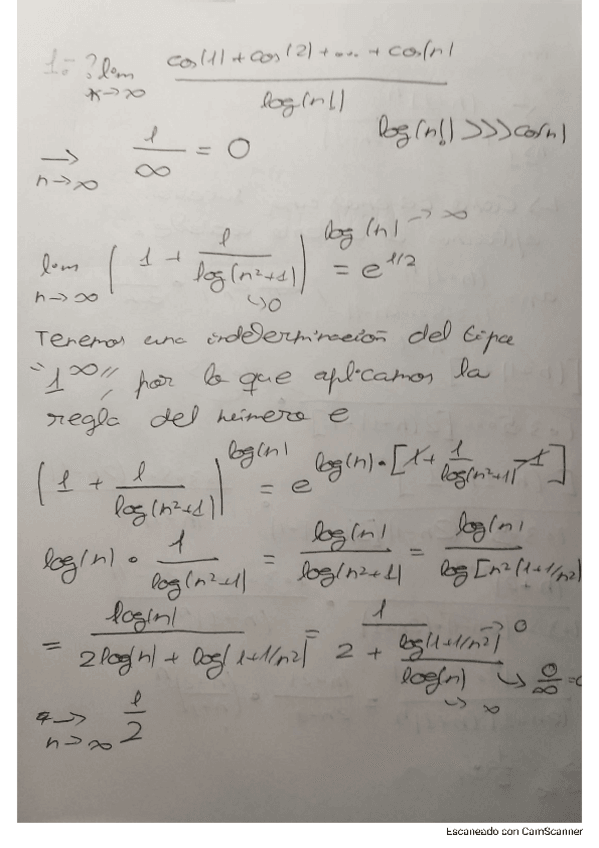 1.- ? lim cos(1) + cos(2) + ... + cos(n)
x→∞ log(n!)
log(n!) >>> cos(n)
→ 1/∞ = 0
n→∞
lim (1 + 1/log(n²+1))^log(n) →∞ = e^1/2
n→∞ ↳0
Tenemos una indeterminación del tipo
"1^∞", por lo que aplicamos la
regla del número e
(1 + 1/log(n²+1))^log(n) = e^log(n)·[1 + 1/log(n²+1) - 1]
log(n) · 1/log(n²+1) = log(n)/log(n²+1) = log(n)/log[n²(1+1/n²)
= log(n)/2log(n) + log(1+1/n²) = 1/2 + log(1+1/n²)→0/log(n) ↳∞ ↳ 0/∞ =0
→ 1/2
n→∞
Escaneado con CamScanner